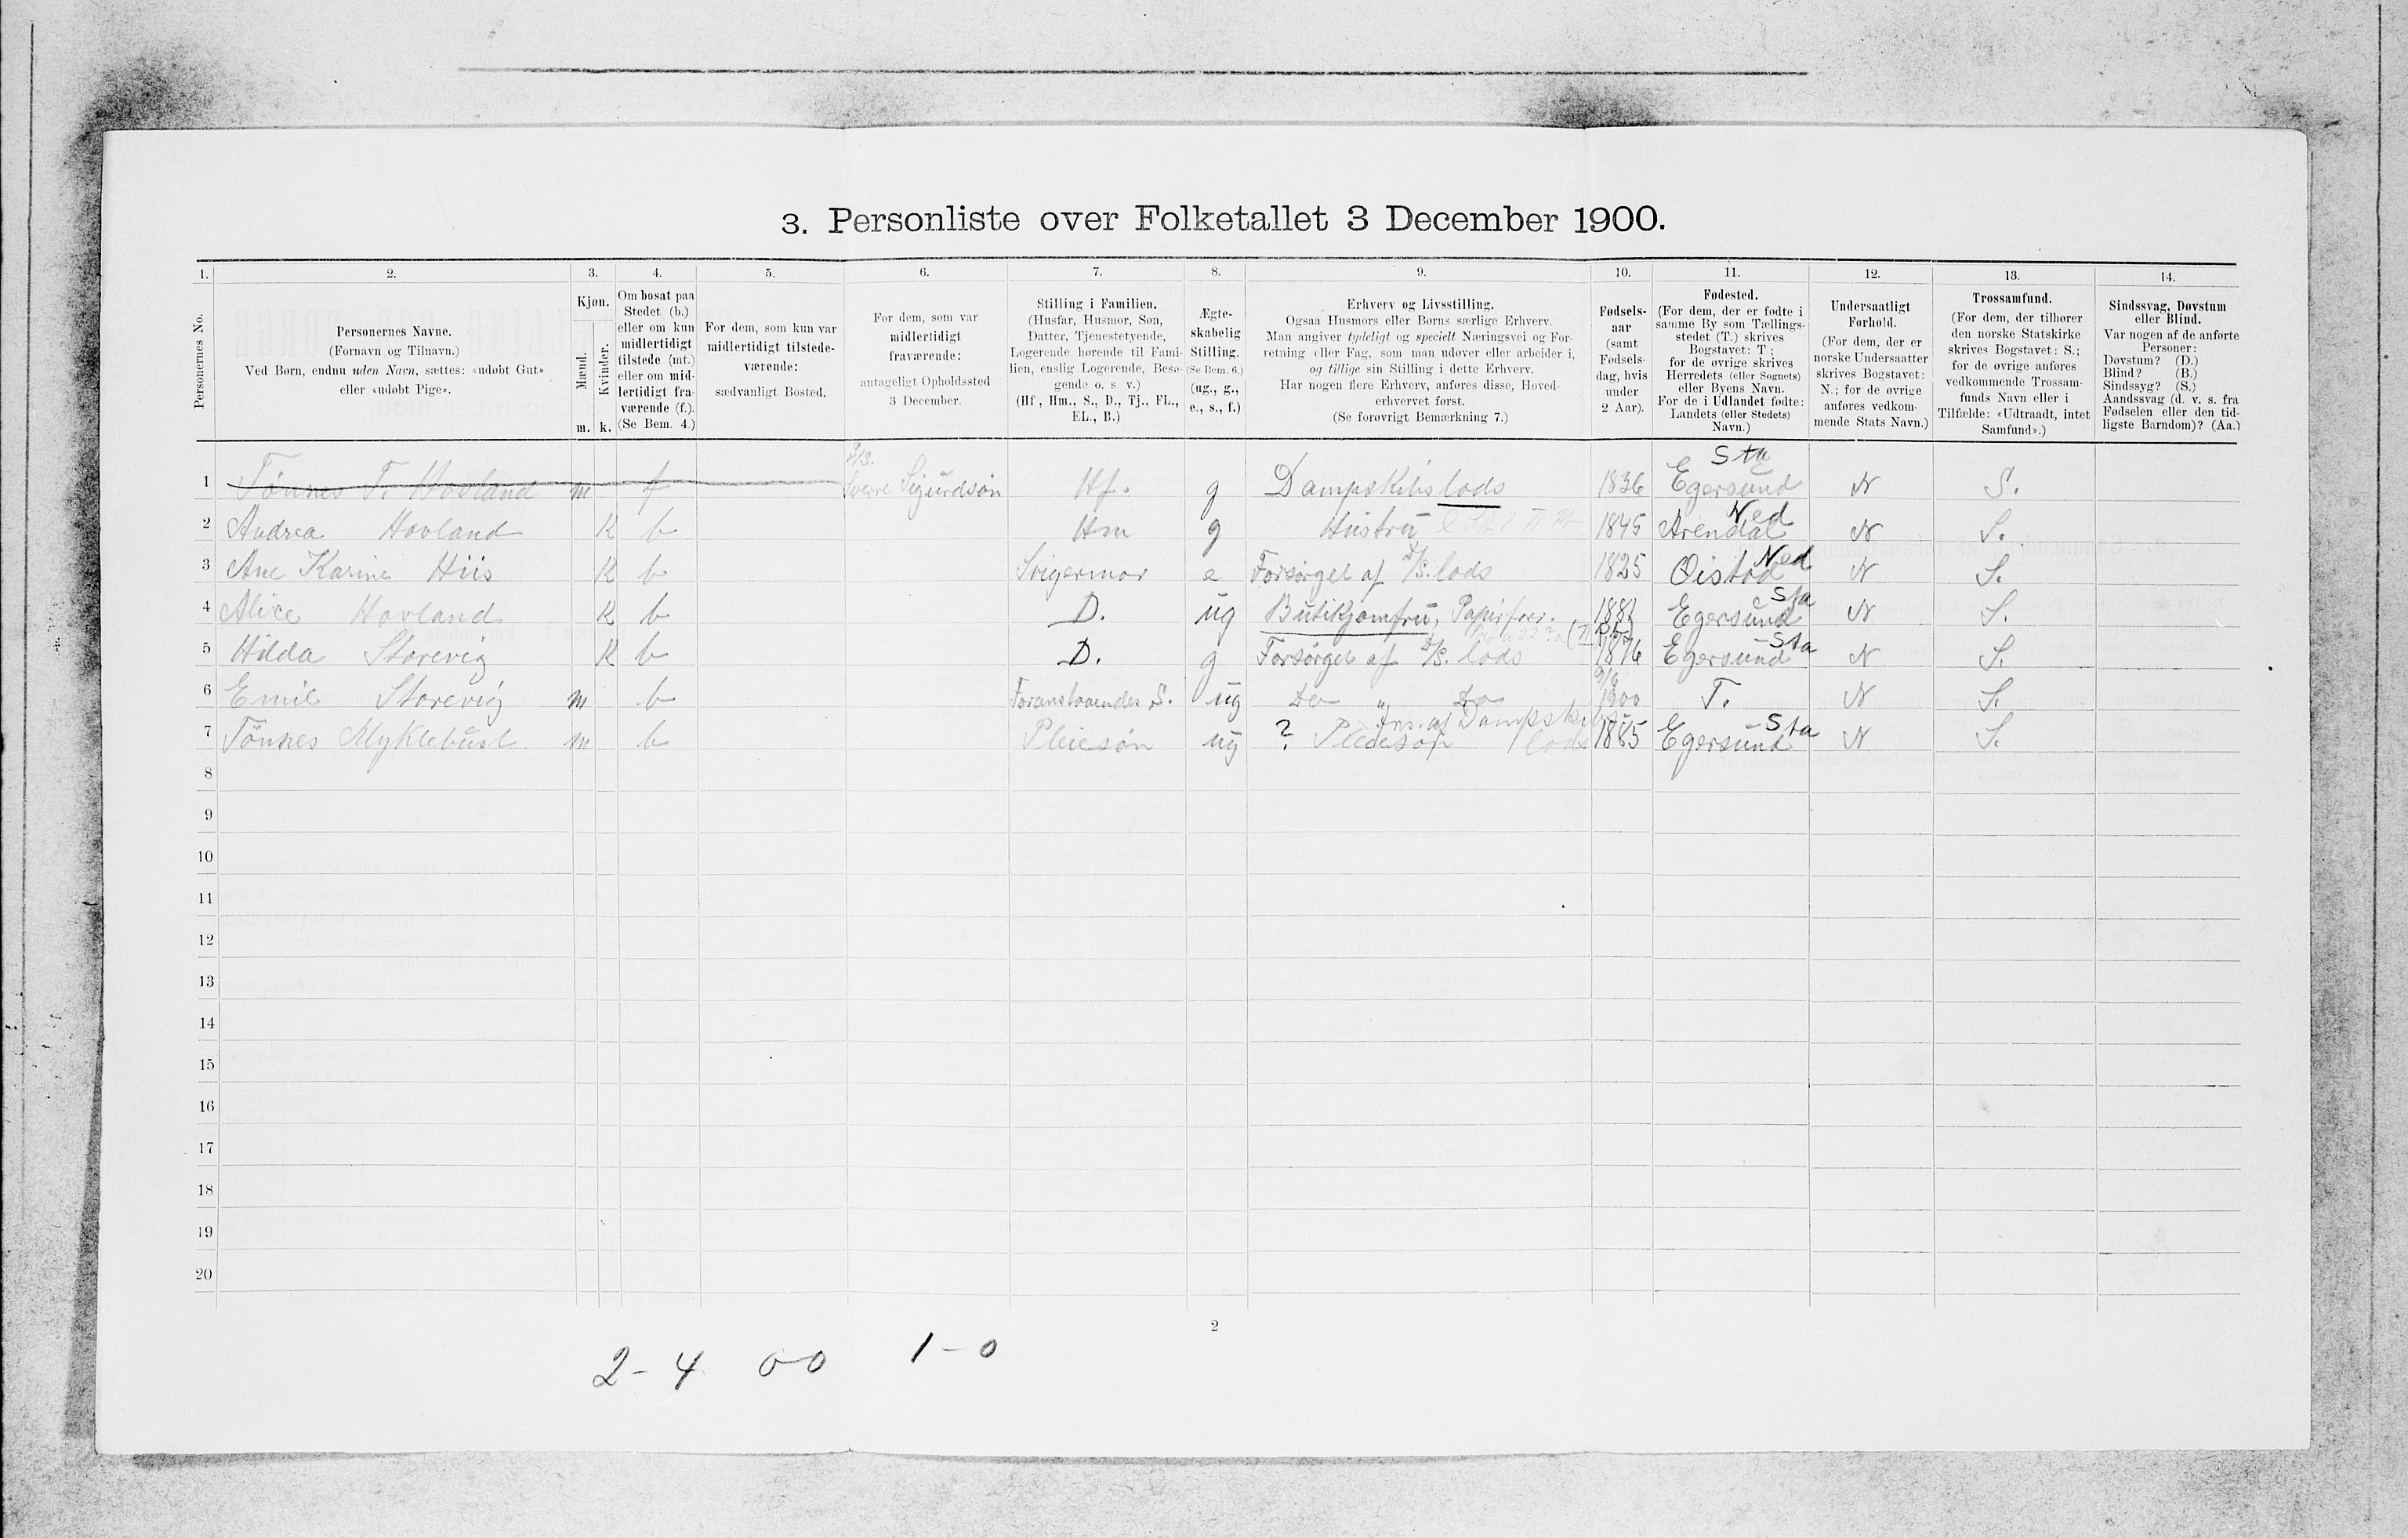 3. Personliste over Folketallet 3 December 1900.
1. 2. 3. 4. 5. 6. 7. 8. 9. 10. 11. 12. 13. 14.
Personernes No.
Personernes Navne.
(Fornavn og Tilnavn.)
Ved Børn, endnu uden Navn, sættes: «udøbt Gut»
eller «udøbt Pige».
Kjøn.
Mænd.
Kvinder.
m. k.
Om bosat paa
Stedet (b.)
eller om kun
midlertidigt
tilstede (mt.)
eller om mid-
lertidigt fra-
værende (f.).
(Se Bem. 4.)
For dem, som kun var
midlertidigt tilstede-
værende:
sædvanligt Bosted.
For dem, som var
midlertidigt
fraværende:
antageligt Opholdssted
3 December.
Stilling i Familien.
(Husfar, Husmor, Søn,
Datter, Tjenestetyende,
Logerende hørende til Fami-
lien, enslig Logerende, Besø-
gende o. s. v.)
(Hf., Hm., S., D., Tj., FL.,
EL., B.)
Ægte-
skabelig
Stilling.
(Se Bem. 6.)
(ug., g.,
e., s., f.)
Erhverv og Livsstilling.
Ogsaa Husmors eller Børns særlige Erhverv.
Man angiver tydeligt og specielt Næringsvei og For-
retning eller Fag, som man udøver eller arbeider i,
og tillige sin Stilling i dette Erhverv.
Har nogen flere Erhverv, anføres disse, Hoved-
erhvervet først.
(Se forøvrigt Bemærkning 7.)
Fødsels-
aar
(samt
Fødsels-
dag, hvis
under
2 Aar).
Fødested.
(For dem, der er fødte i
samme By som Tællings-
stedet (T.) skrives
Bogstavet: T;
for de øvrige skrives
Herredets (eller Sognets)
eller Byens Navn.
For de i Udlandet fødte:
Landets (eller Stedets)
Navn.)
Undersaatligt
Forhold.
(For dem, der er
norske Undersaatter
skrives Bogstavet:
N.; for de øvrige
anføres vedkom-
mende Stats Navn.)
Trossamfund.
(For dem, der tilhører
den norske Statskirke
skrives Bogstavet: S.;
for de øvrige anføres
vedkommende Trossam-
funds Navn eller i
Tilfælde: «Udtraadt, intet
Samfund».)
Sindssvag, Døvstum
eller Blind.
Var nogen af de anførte
Personer:
Døvstum? (D.)
Blind? (B.)
Sindssyg? (S.)
Aandssvag (d. v. s. fra
Fødselen eller den tid-
ligste Barndom)? (Aa.)
1 Tønnes T. Hovland m f Sverre Sigurdsøn Hf. g Dampskibslods 1836 Egersund Sta N S.
2 Andrea Hovland K b Hm g Hustru 1845 Arendal Ned N S.
3 Ane Karine Hiis K b Svigermor e Forsørget af D/S. lods 1825 Oistad Ned N S.
4 Alice Hovland K b D. ug Butikjomfru, Papirforr. 1881 Egersund Sta N S.
5 Hilda Storevig K b D. g Forsørget af D/S. lods 1876 Egersund Sta N S.
6 Emil Storevig m b Foranstaaendes S. ug Do „ Do 9/6 1900 T. N S.
7 Tønnes Myklebust m b Pleiesøn ug ? Pleiesøn Frs. af Dampskibslods 1885 Egersund Sta N S.
8
9
10
11
12
13
14
15
16
17
18
19
20
2
2-4 0-0 1-0